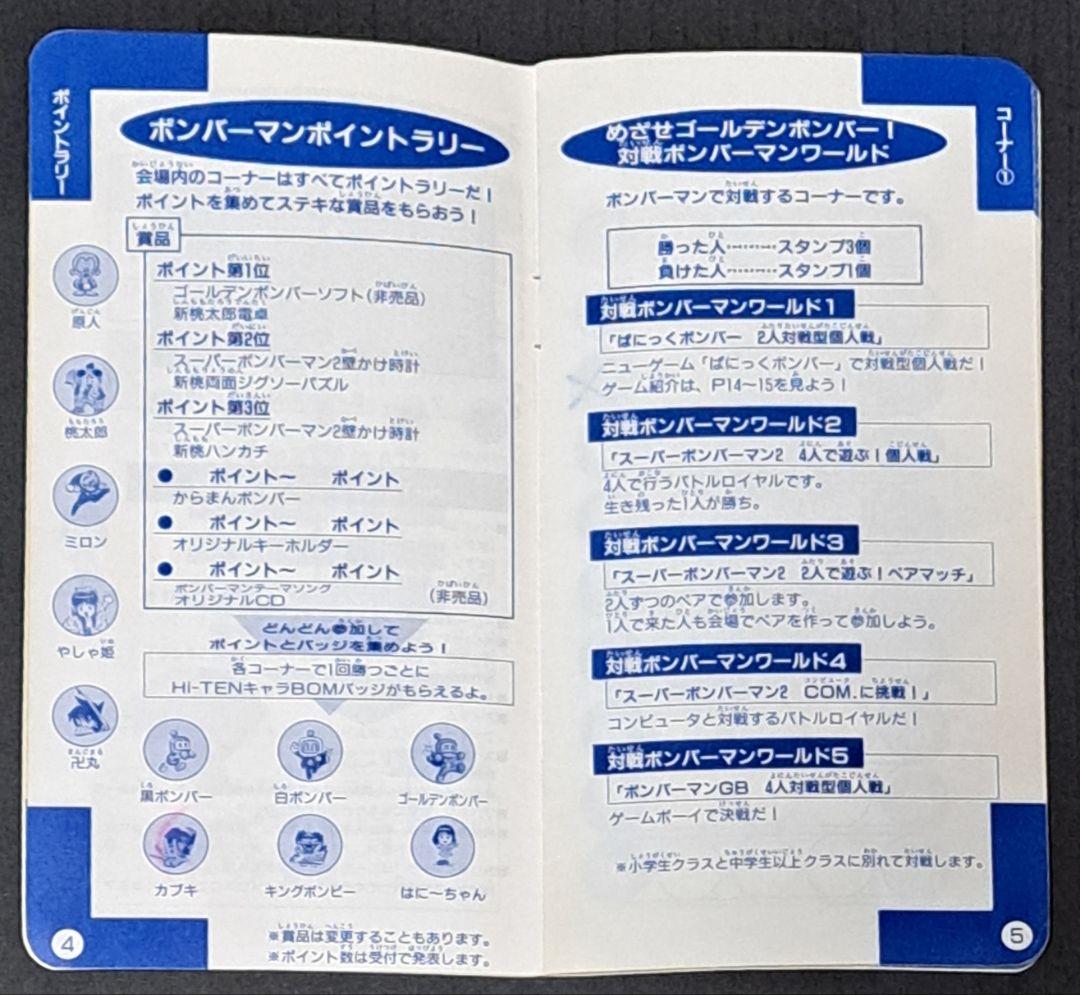 ポイントラリー
ボンバーマンポイントラリー
会場内のコーナーはすべてポイントラリーだ！
ポイントを集めてステキな賞品をもらおう！
賞品
ポイント第1位
ゴールデンボンバーソフト(非売品)
新桃太郎電卓
ポイント第2位
スーパーボンバーマン2壁かけ時計
新桃両面ジグソーパズル
ポイント第3位
スーパーボンバーマン2壁かけ時計
新桃ハンカチ
● ポイント〜 ポイント
からまんボンバー
● ポイント〜 ポイント
オリジナルキーホルダー
● ポイント〜 ポイント
ボンバーマンテーマソング
オリジナルCD (非売品)
どんどん参加して
ポイントとバッジを集めよう！
各コーナーで1回勝つごとに
HI-TENキャラBOMバッジがもらえるよ。
原人
桃太郎
ミロン
やしゃ姫
卍丸
黒ボンバー
白ボンバー
ゴールデンボンバー
カブキ
キングボンビー
はに〜ちゃん
※賞品は変更することもあります。
※ポイント数は受付で発表します。
4
コーナー①
めざせゴールデンボンバー！
対戦ボンバーマンワールド
ボンバーマンで対戦するコーナーです。
勝った人………スタンプ3個
負けた人………スタンプ1個
対戦ボンバーマンワールド1
「ぱにっくボンバー 2人対戦型個人戦」
ニューゲーム「ぱにっくボンバー」で対戦型個人戦だ！
ゲーム紹介は、P14〜15を見よう！
対戦ボンバーマンワールド2
「スーパーボンバーマン2 4人で遊ぶ！個人戦」
4人で行うバトルロイヤルです。
生き残った1人が勝ち。
対戦ボンバーマンワールド3
「スーパーボンバーマン2 2人で遊ぶ！ペアマッチ」
2人ずつのペアで参加します。
1人で来た人も会場でペアを作って参加しよう。
対戦ボンバーマンワールド4
「スーパーボンバーマン2 COM.に挑戦！」
コンピュータと対戦するバトルロイヤルだ！
対戦ボンバーマンワールド5
「ボンバーマンGB 4人対戦型個人戦」
ゲームボーイで決戦だ！
※小学生クラスと中学生以上クラスに別れて対戦します。
5